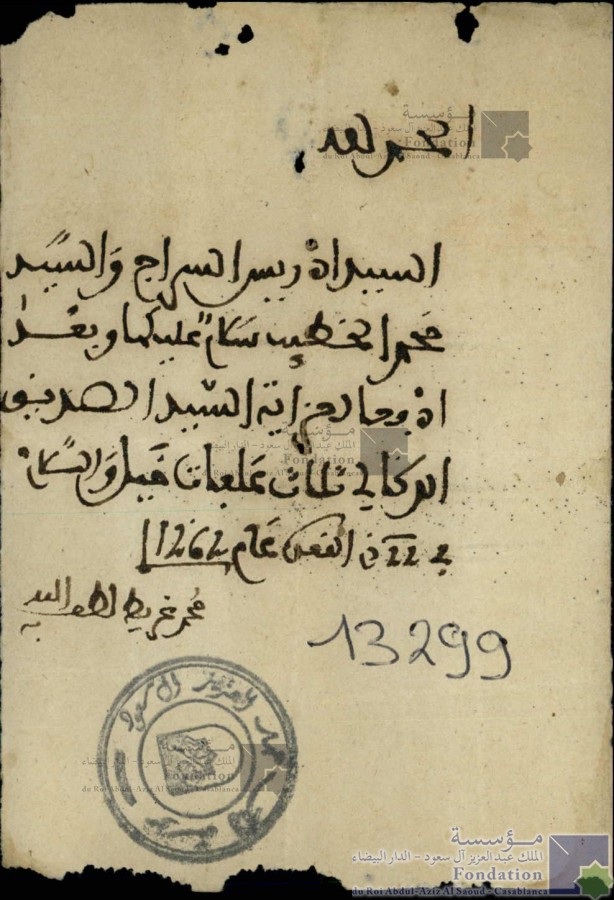 الحمد لله
السيد ادريس السراج والسيد
محمد الخطيب سلام عليكما وبعد
ادفعا لخزانة السيد الصديق
البركاي ثلاث فيل والسلام
في 22 ذي القعدة عام 1262
محمد غريط لطف الله
به
13299
عبد العزيز آل سعود
مؤسسة الملك
مؤسسة
الملك عبد العزيز آل سعود - الدار البيضاء
Fondation
du Roi Abdul-Aziz Al Saoud - Casablanca